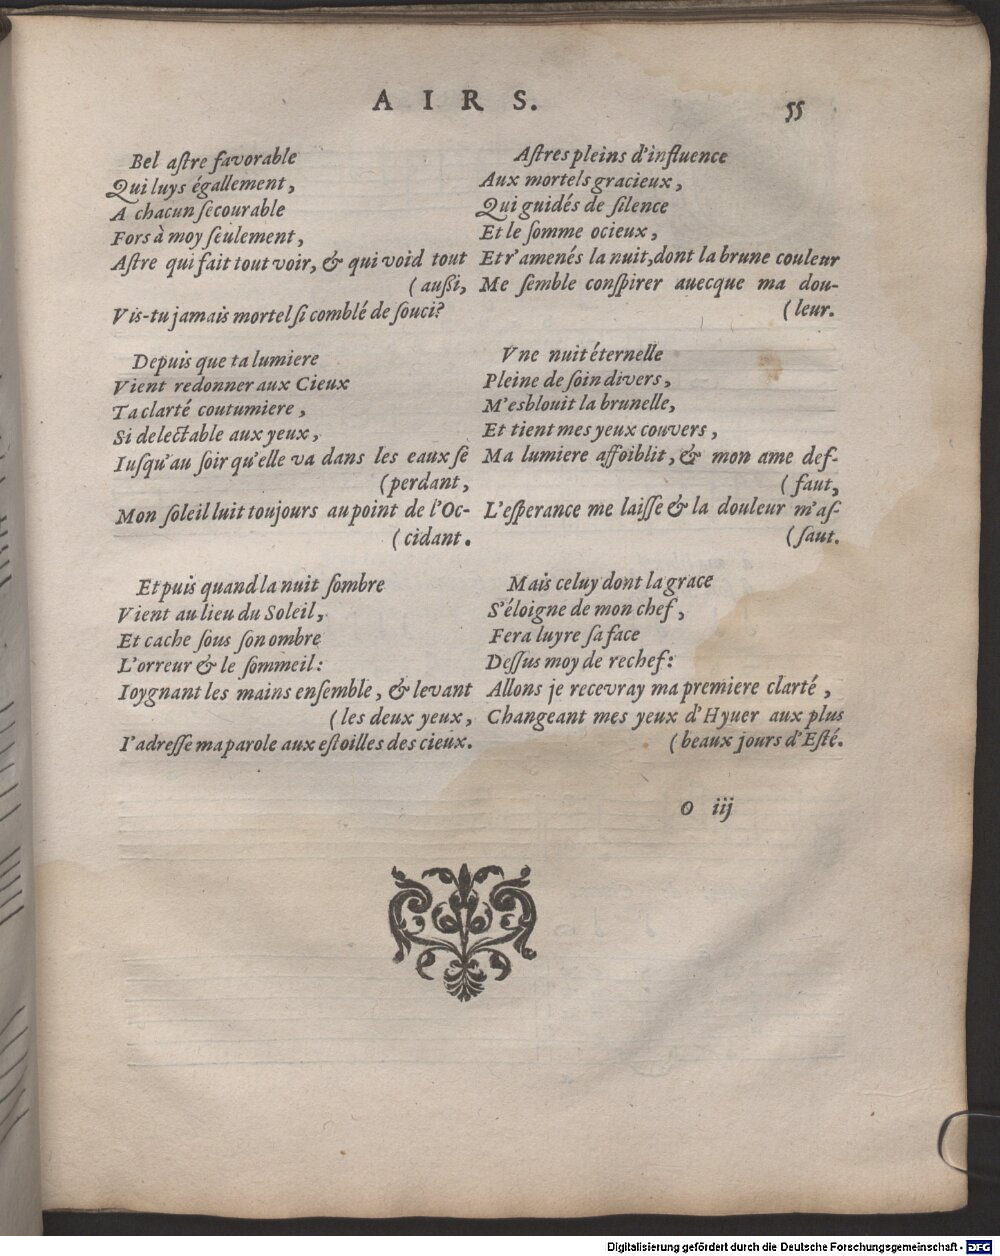 AIRS.
55
Bel aſtre favorable
Qui luys égallement,
A chacun ſecourable
Fors à moy ſeulement,
Aſtre qui fait tout voir, & qui void tout
(auſſi,
Vis-tu jamais mortel ſi comblé de ſouci?
Depuis que ta lumiere
Vient redonner aux Cieux
Ta clarté coutumiere,
Si delectable aux yeux,
Iuſqu'au ſoir qu'elle va dans les eaux ſe
(perdant,
Mon ſoleil luit toujours au point de l'Oc-
(cidant.
Et puis quand la nuit ſombre
Vient au lieu du Soleil,
Et cache ſous ſon ombre
L'orreur & le ſommeil:
Ioygnant les mains enſemble, & levant
(les deux yeux,
I'adreſſe ma parole aux eſtoilles des cieux.
Aſtres pleins d'influence
Aux mortels gracieux,
Qui guidés de ſilence
Et le ſomme ocieux,
Et r'amenés la nuit, dont la brune couleur
Me ſemble conſpirer auecque ma dou-
(leur.
Vne nuit éternelle
Pleine de ſoin divers,
M'esblouit la brunelle,
Et tient mes yeux couvers,
Ma lumiere affoiblit, & mon ame def-
(faut,
L'eſperance me laiſſe & la douleur m'aſ-
(ſaut.
Mais celuy dont la grace
S'éloigne de mon chef,
Fera luyre ſa face
Deſſus moy de rechef:
Allons je recevray ma premiere clarté,
Changeant mes yeux d'Hyuer aux plus
(beaux jours d'Eſté.
O iij
Digitalisierung gefördert durch die Deutsche Forschungsgemeinschaft - DFG